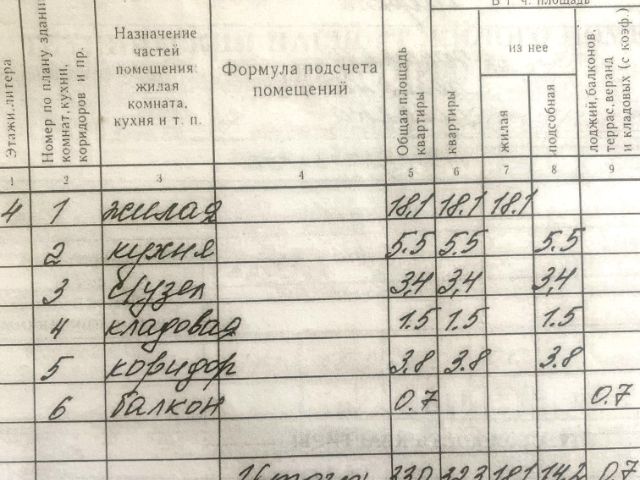 В т. ч. площадь
Этажи, литера
Номер по плану здания комнат, кухни, коридоров и пр.
Назначение
частей
помещения:
жилая
комната,
кухня и т. п.
Формула подсчета
помещений
Общая площадь
квартиры
квартиры
из нее
жилая
подсобная
лоджий, балконов,
террас, веранд
и кладовых (с коэф.)
1 2 3 4 5 6 7 8 9
4 1 жилая 18,1 18.1 18.1
2 кухня 5.5 5.5 5.5
3 с/узел 3,4 3,4 3,4
4 кладовая 1.5 1.5 1.5
5 коридор 3.8 3.8 3.8
6 балкон 0.7 0.7
Итого 33,0 32,3 18,1 14,2 0.7